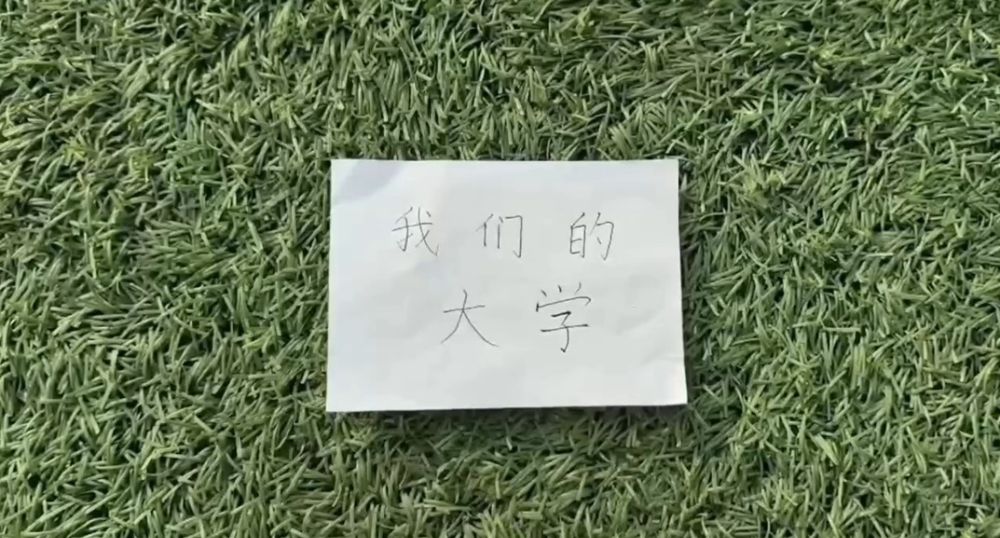 我们的
大学